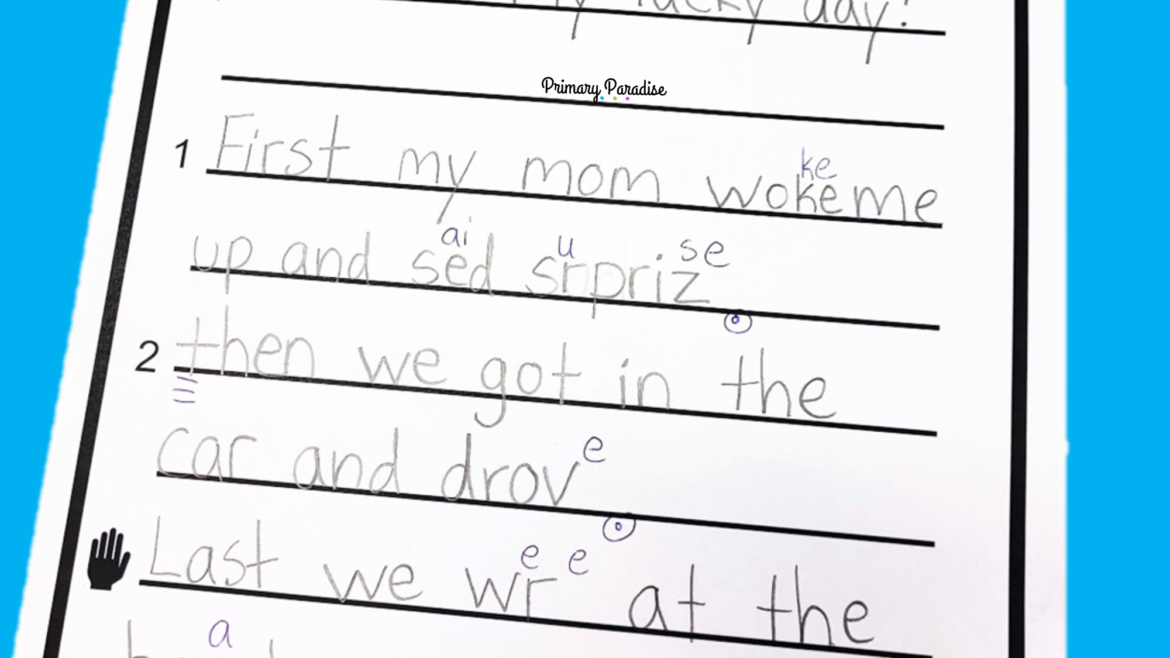 my lucky day!
Primary Paradise
ke
1 First my mom woke me
ai u se
up and sed srpriz
2 then we got in the
e
car and drov
e e
Last we wr at the
a